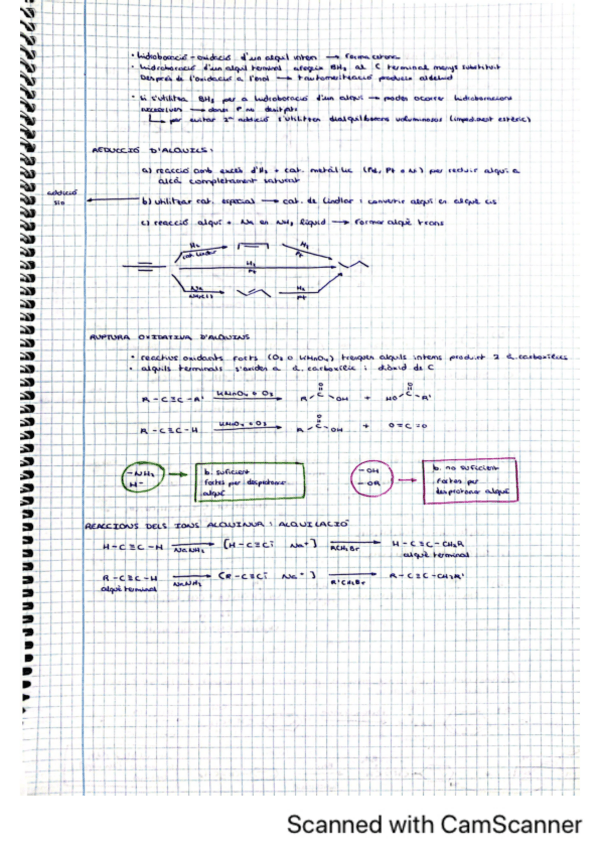 • hidroboració-oxidació d'un alquí intern → forma cetona
• hidroboració d'un alquí terminal afegin BH₃ al C terminal menys substituit
Després de l'oxidació a l'enol → tautomerització produeix aldehid
• si s'utilitza BH₃ per a hidroboració d'un alquí → poden ocórrer hidroboracions
→ dones
per evitar 2ª addició s'utilitzen dialquilborans voluminosos (impediment estèric)
REDUCCIÓ D'ALQUINS:
a) reacció amb excés d'H₂ + cat. metàl·lic (Pd, Pt o Ni) per reduir alquí a
alcà completament saturat
addició
sin
b) utilitzar cat. especial → cat. de Lindlar : convertir alquí en alquè cis
c) reacció alquí + Na en NH₃ líquid → formar alquè trans
H₂
cat. Lindlar
H₂
Pt
H₂
Pt
Na
NH₃(l)
H₂
Pt
RUPTURA OXIDATIVA D'ALQUINS
• reactius oxidants forts (O₃ o KMnO₄) trenquen alquins interns produint 2 à. carboxílics
• alquins terminals s'oxiden a à. carboxílic i diòxid de C
R-C≡C-R' KMnO₄ o O₃ R C O OH + HO C O R'
R-C≡C-H KMnO₄ o O₃ R C O OH + O=C=O
-NH₂
H⁻
b. suficient
fortes per desprotonar
alquí
-OH
-OR
b. no suficient
fortes per
desprotonar alquí
REACCIONS DELS IONS ALQUINUR : ALQUILACIÓ
H-C≡C-H NaNH₂ [H-C≡C: Na⁺] RCH₂Br H-C≡C-CH₂R
alquí terminal
R-C≡C-H NaNH₂ [R-C≡C: Na⁺] R'CH₂Br R-C≡C-CH₂R'
alquí terminal
Scanned with CamScanner